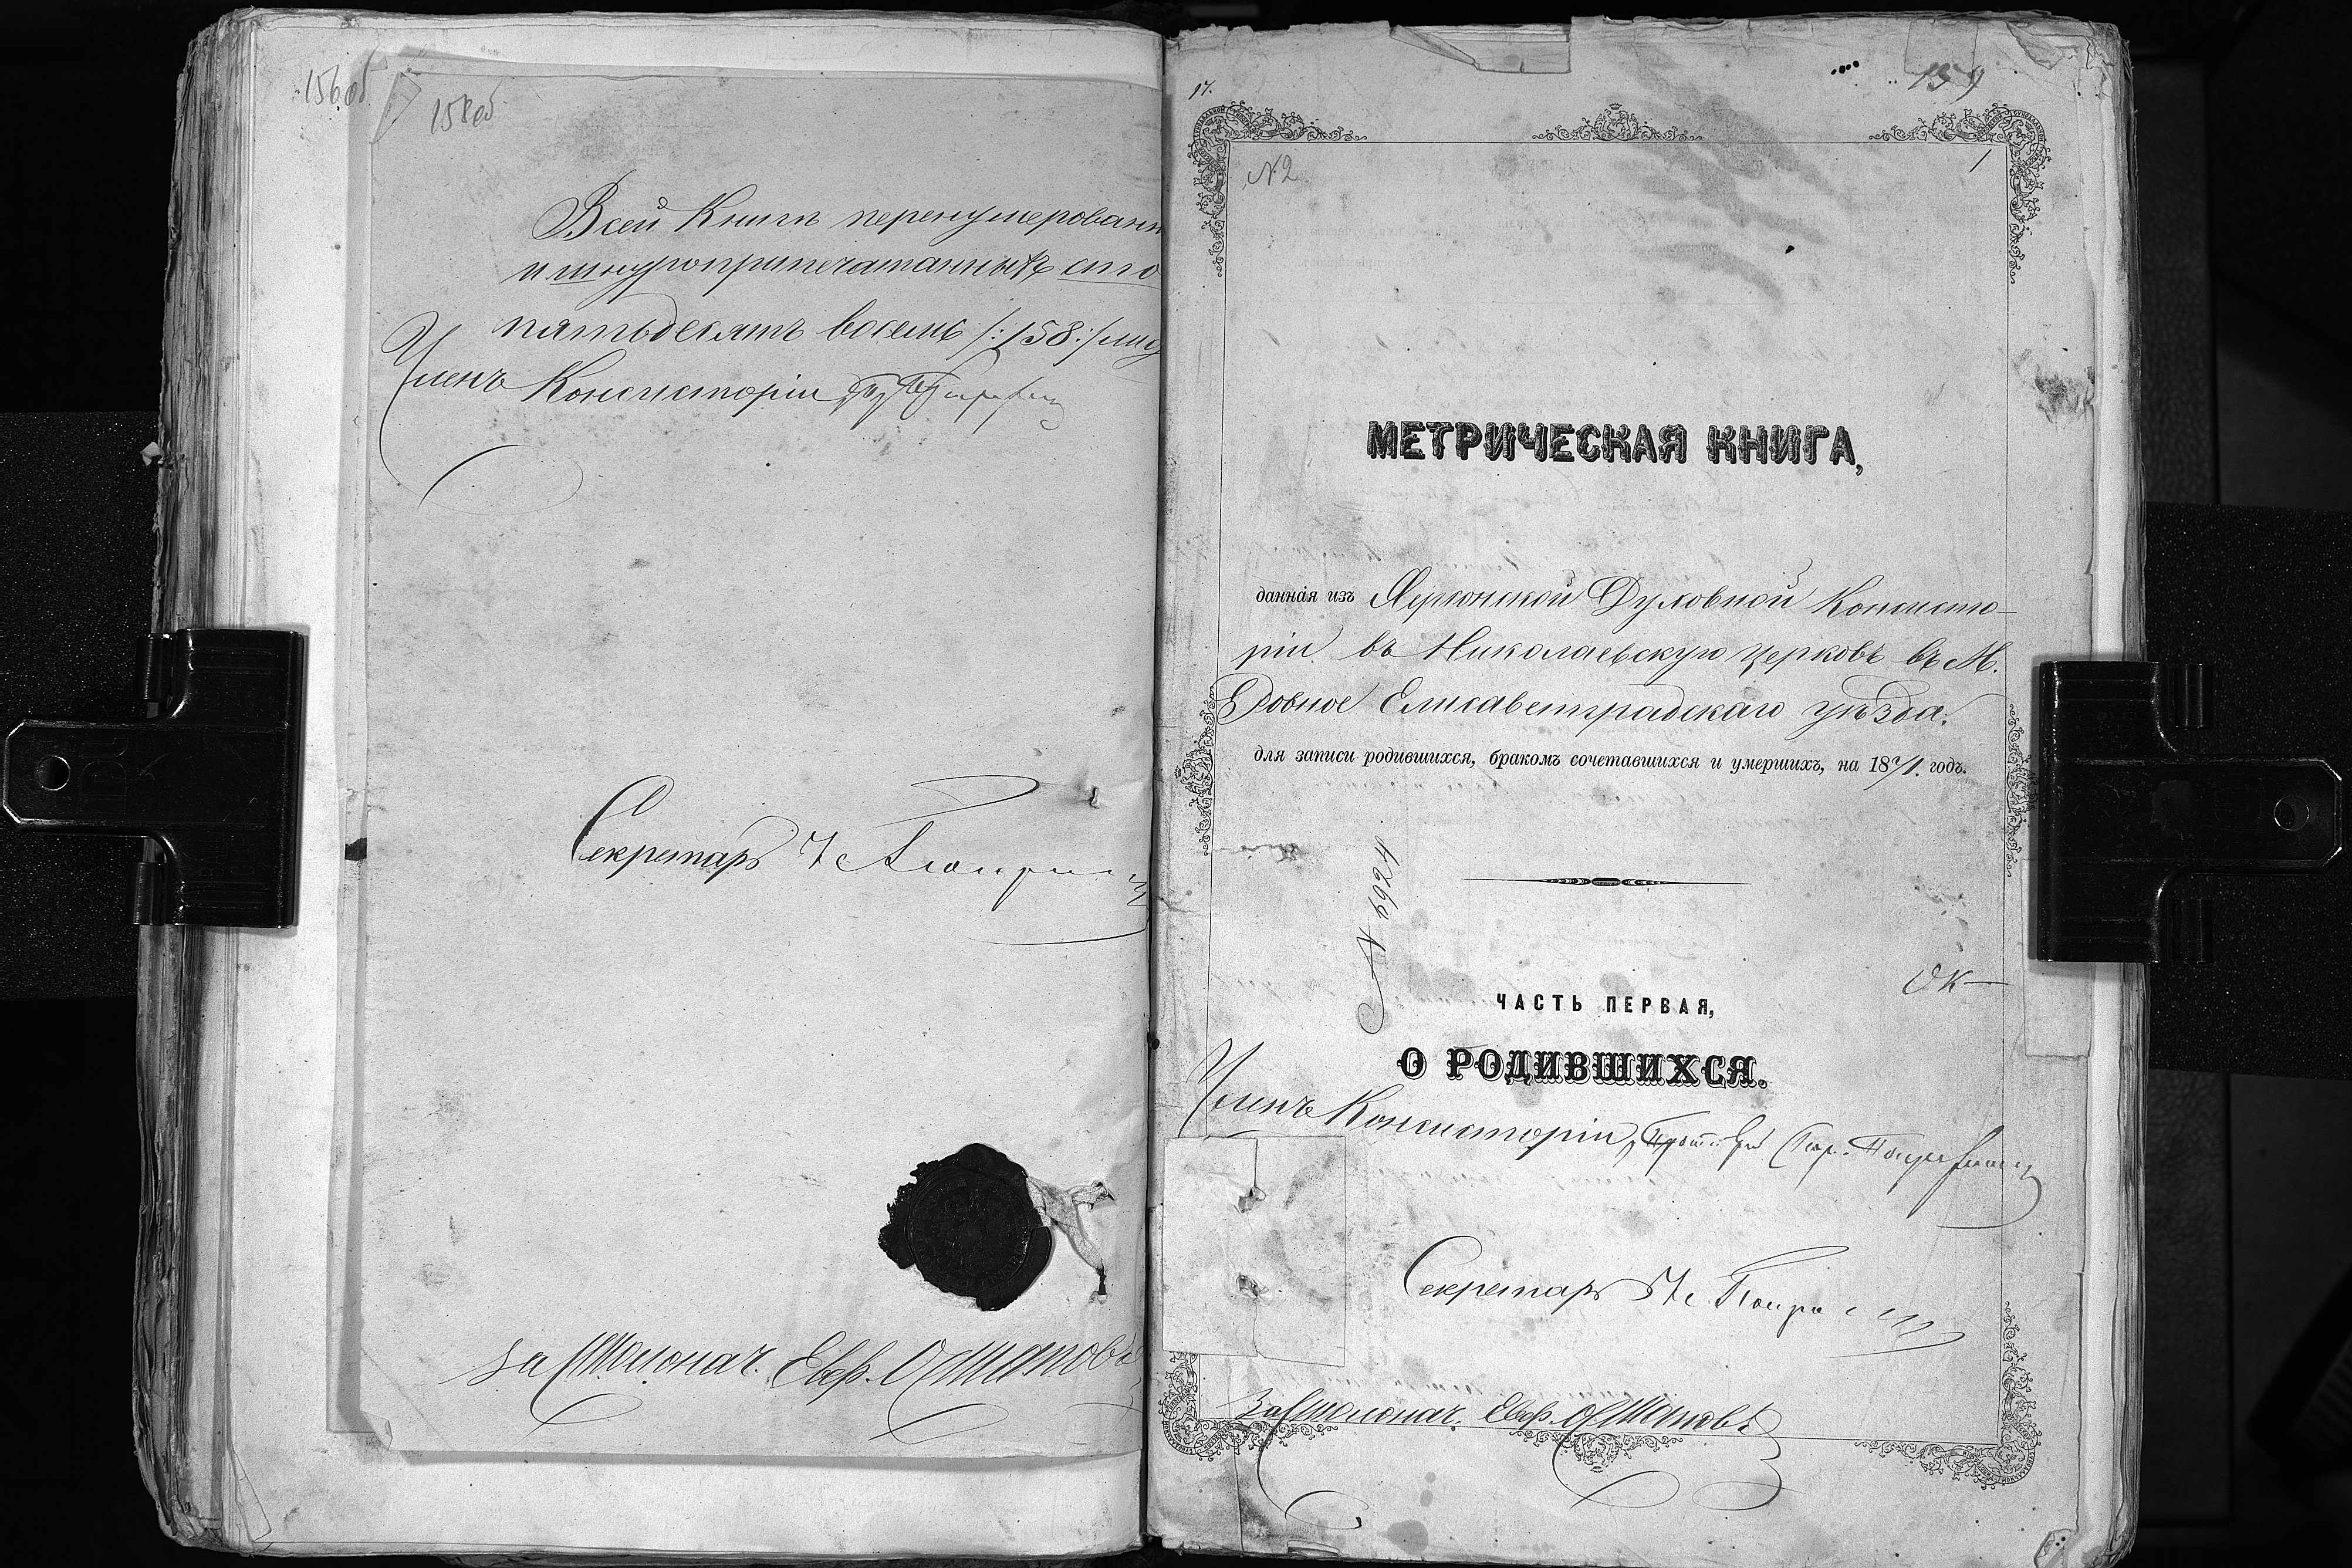 156об
158об
Всей Книги перенумерованн
и шнуроприпечатанныхъ сто
пятьдесятъ восемь /:158:/ лис
Членъ Консисторіи
Секретарь
За Столонач. Евф. Остаповъ
17.
159
№2
1
МЕТРИЧЕСКАЯ КНИГА,
данная изъ Херсонской Духовной Консисто-
ріи въ Николаевскую церковь въ М.
Ровное Елисаветградскаго уѣзда.
для записи родившихся, бракомъ сочетавшихся и умершихъ, на 1871. годъ.
№ 6924
ОК
ЧАСТЬ ПЕРВАЯ,
О РОДИВШИХСЯ.
Членъ Консисторіи, Протоіерей
Секретарь
За Столонач. Евф. Остаповъ